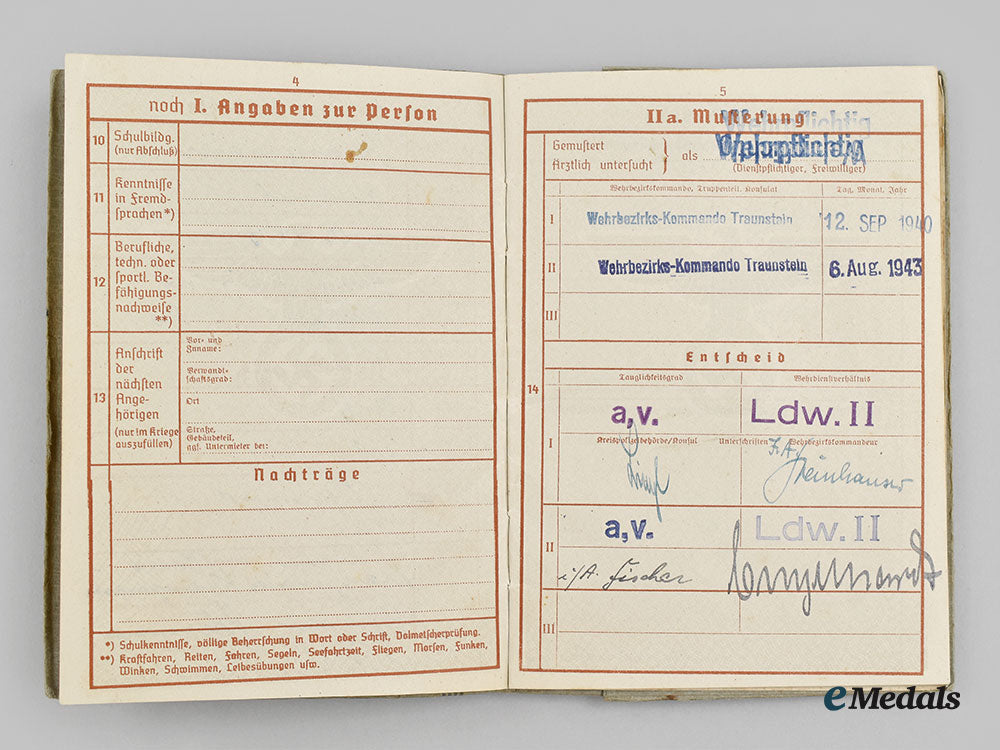 4
noch I. Angaben zur Person
10 Schulbildg.
(nur Abschluß)
11 Kenntnisse
in Fremd-
sprachen*)
12 Berufliche,
techn. oder
sportl. Be-
fähigungs-
nachweise
**)
13 Anschrift
der
nächsten
Ange-
hörigen
(nur im Kriege
auszufüllen)
Vor- und
Zuname:
Verwandt-
schaftsgrad:
Ort
Straße,
Gebäudeteil,
ggf. Untermieter bei:
Nachträge
*) Schulkenntnisse, völlige Beherrschung in Wort oder Schrift, Dolmetscherprüfung.
**) Kraftfahren, Reiten, Fahren, Segeln, Seefahrtzeit, Fliegen, Morsen, Funken,
Winken, Schwimmen, Leibesübungen usw.
5
IIa. Musterung
Wehrpflichtig
Gemustert
Ärztlich untersucht } als Wehrpflichtig
(Dienstpflichtiger, Freiwilliger)
Wehrbezirkskommando, Truppenteil, Konsulat Tag, Monat, Jahr
I Wehrbezirks-Kommando Traunstein 12. SEP 1940
II Wehrbezirks-Kommando Traunstein 6. Aug. 1943
III
Entscheid
14
Tauglichkeitsgrad Wehrdienstverhältnis
I a.v. Ldw. II
Kreispolizeibehörde/Konsul Unterschriften Wehrbezirkskommandeur
J.A.
Steinhauser
II a.v. Ldw. II
i/A. Fischer
III
eMedals